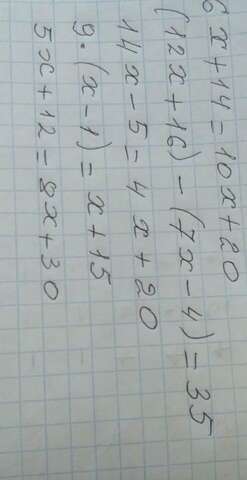 6x+14=10x+20
(12x+16)-(7x-4)=35
14x-5=4x+20
9·(x-1)=x+15
5x+12=8x+30